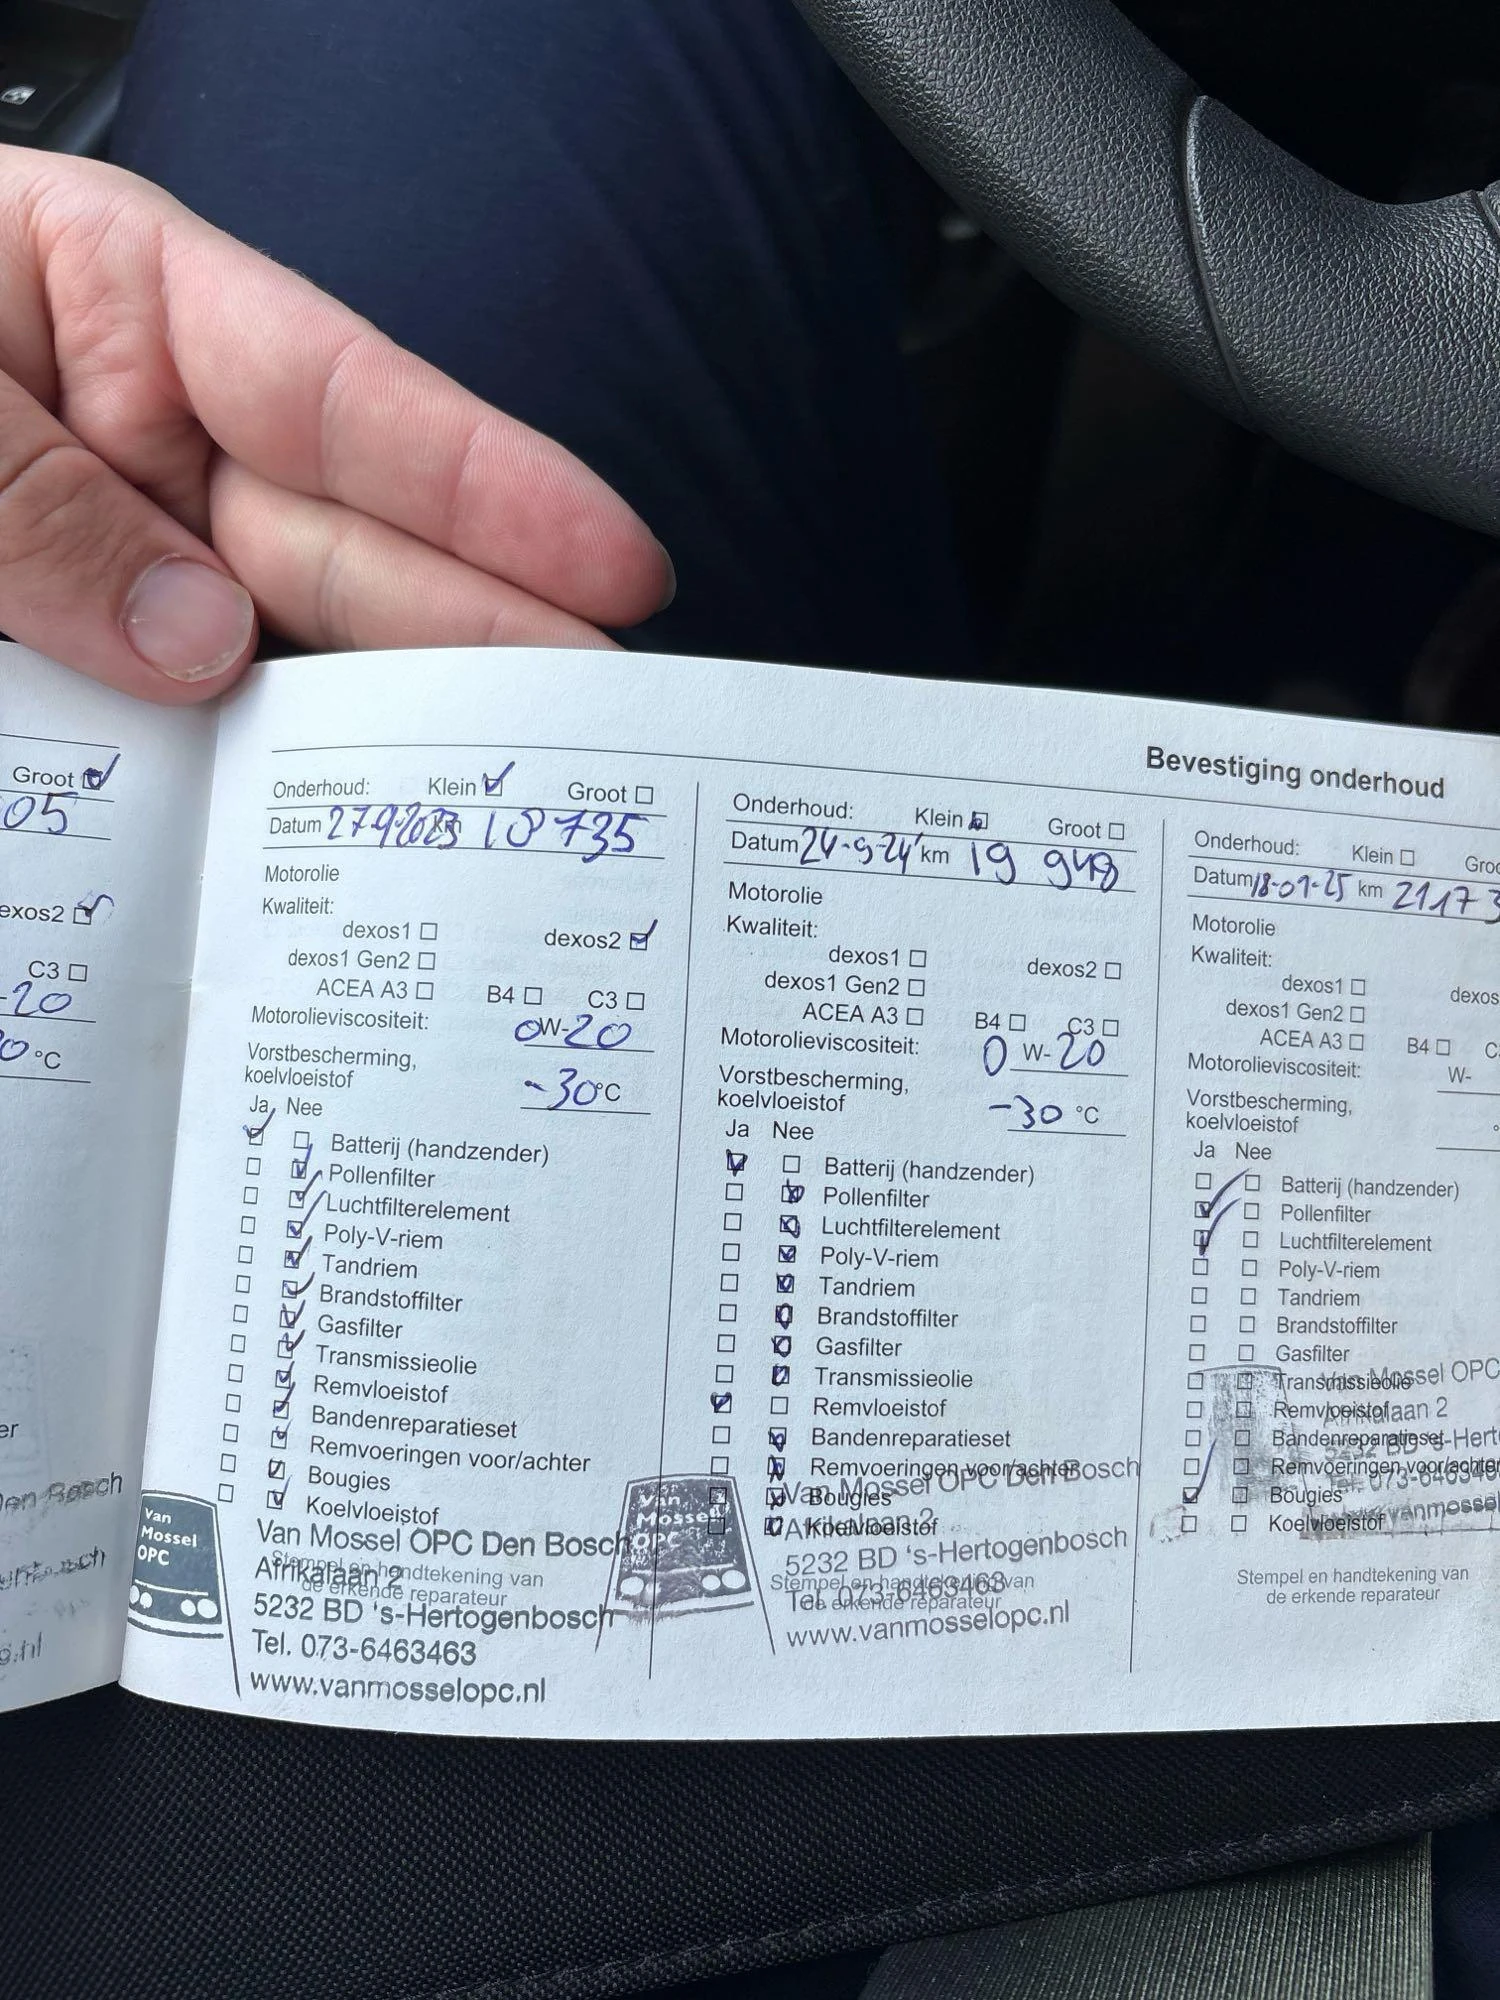 Groot
05
exos2
C3
-20
0 °C
er
Den Bosch
Bevestiging onderhoud
Onderhoud: Klein Groot
Datum 27-9-2023 km 18735
Motorolie
Kwaliteit:
dexos1 dexos2
dexos1 Gen2
ACEA A3 B4 C3
Motorolieviscositeit: 0W-20
Vorstbescherming,
koelvloeistof -30°C
Ja Nee
Batterij (handzender)
Pollenfilter
Luchtfilterelement
Poly-V-riem
Tandriem
Brandstoffilter
Gasfilter
Transmissieolie
Remvloeistof
Bandenreparatieset
Remvoeringen voor/achter
Bougies
Koelvloeistof
Stempel en handtekening van
de erkende reparateur
Van
Mossel
OPC
Van Mossel OPC Den Bosch
Afrikalaan 2
5232 BD 's-Hertogenbosch
Tel. 073-6463463
www.vanmosselopc.nl
Onderhoud: Klein Groot
Datum 24-9-24 km 19 948
Motorolie
Kwaliteit:
dexos1 dexos2
dexos1 Gen2
ACEA A3 B4 C3
Motorolieviscositeit: 0 W-20
Vorstbescherming,
koelvloeistof -30 °C
Ja Nee
Batterij (handzender)
Pollenfilter
Luchtfilterelement
Poly-V-riem
Tandriem
Brandstoffilter
Gasfilter
Transmissieolie
Remvloeistof
Bandenreparatieset
Remvoeringen voor/achter
Bougies
Koelvloeistof
Stempel en handtekening van
de erkende reparateur
Van
Mossel
OPC
Van Mossel OPC Den Bosch
Afrikalaan 2
5232 BD 's-Hertogenbosch
Tel. 073-6463463
www.vanmosselopc.nl
Onderhoud: Klein Groo
Datum 18-09-25 km 21173
Motorolie
Kwaliteit:
dexos1 dexos
dexos1 Gen2
ACEA A3 B4 C
Motorolieviscositeit: W-
Vorstbescherming,
koelvloeistof
Ja Nee
Batterij (handzender)
Pollenfilter
Luchtfilterelement
Poly-V-riem
Tandriem
Brandstoffilter
Gasfilter
Transmissieolie
Remvloeistof
Bandenreparatieset
Remvoeringen voor/achter
Bougies
Koelvloeistof
Stempel en handtekening van
de erkende reparateur
Van Mossel OPC
Afrikalaan 2
5232 BD 's-Hert
Tel. 073-64634
vanmossel